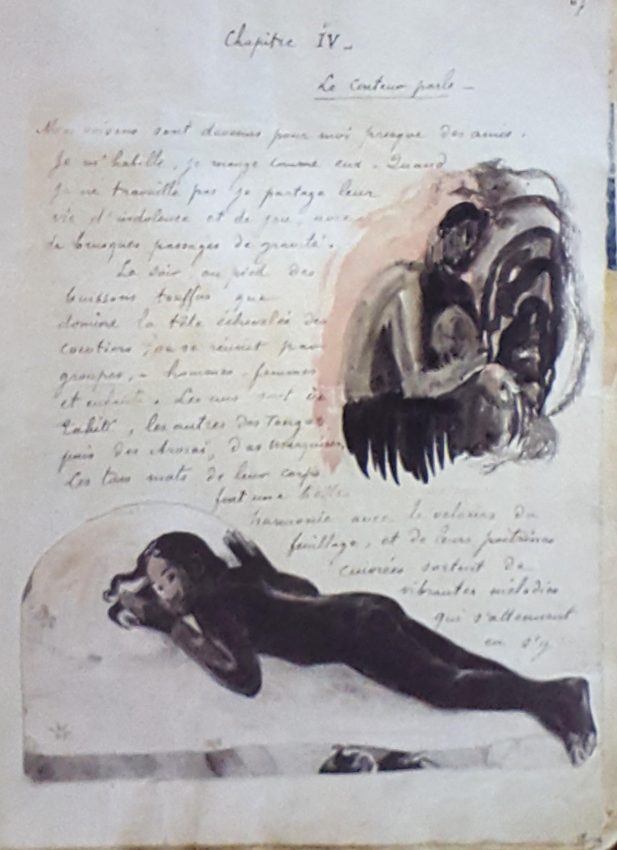 Chapitre IV_
Le conteur parle _
Mes voisins sont devenus pour moi presque des amis.
Je m'habille, je mange comme eux. Quand
je ne travaille pas je partage leur
vie d'indolence et de joie, avec
de brusques passages de gravité.
Le soir, au pied des
buissons touffus que
domine la tête échevelée des
cocotiers, on se réunit par
groupes, - hommes, femmes
et enfants. Les uns sont de
Tahiti, les autres des Tongas
puis des Arorai, des Marquises,
Les tons mats de leur corps
font une belle
harmonie avec le velours du
feuillage, et de leurs poitrines
cuivrées sortent de
vibrantes mélodies
qui s'atténuent
en s'y